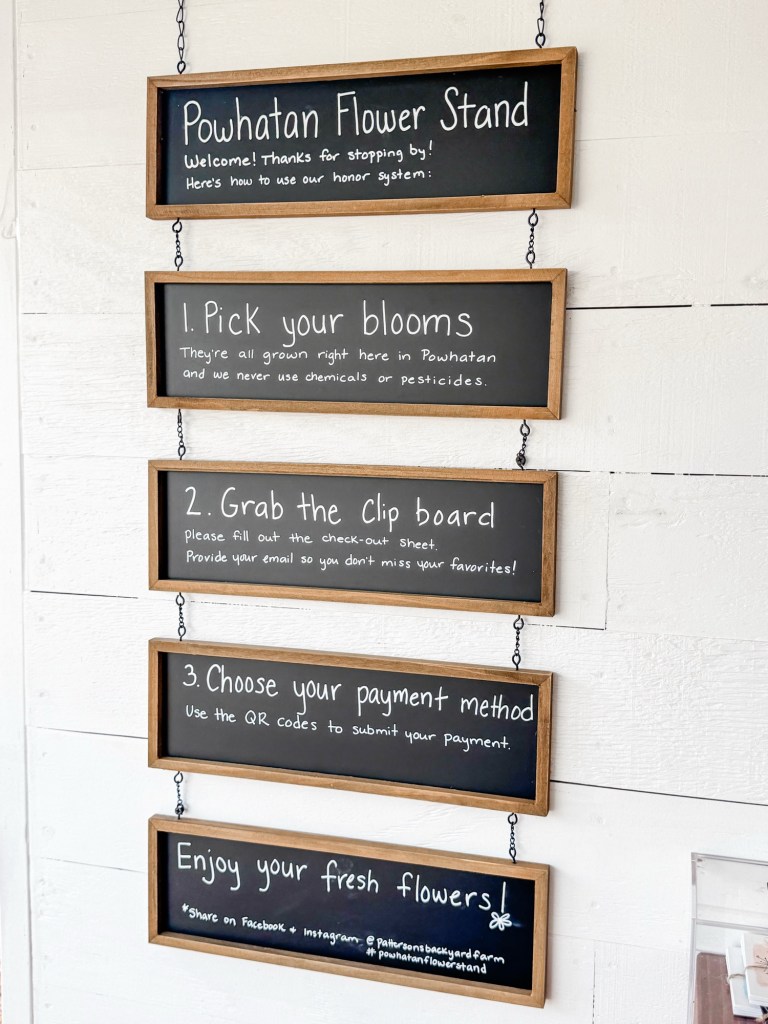 Powhatan Flower Stand
Welcome! Thanks for stopping by!
Here's how to use our honor system:
1. Pick your blooms
They're all grown right here in Powhatan
and we never use chemicals or pesticides.
2. Grab the clip board
Please fill out the check-out sheet.
Provide your email so you don't miss your favorites!
3. Choose your payment method
Use the QR codes to submit your payment.
Enjoy your fresh flowers!
*Share on Facebook + Instagram @pattersonsbackyardfarm
#powhatanflowerstand